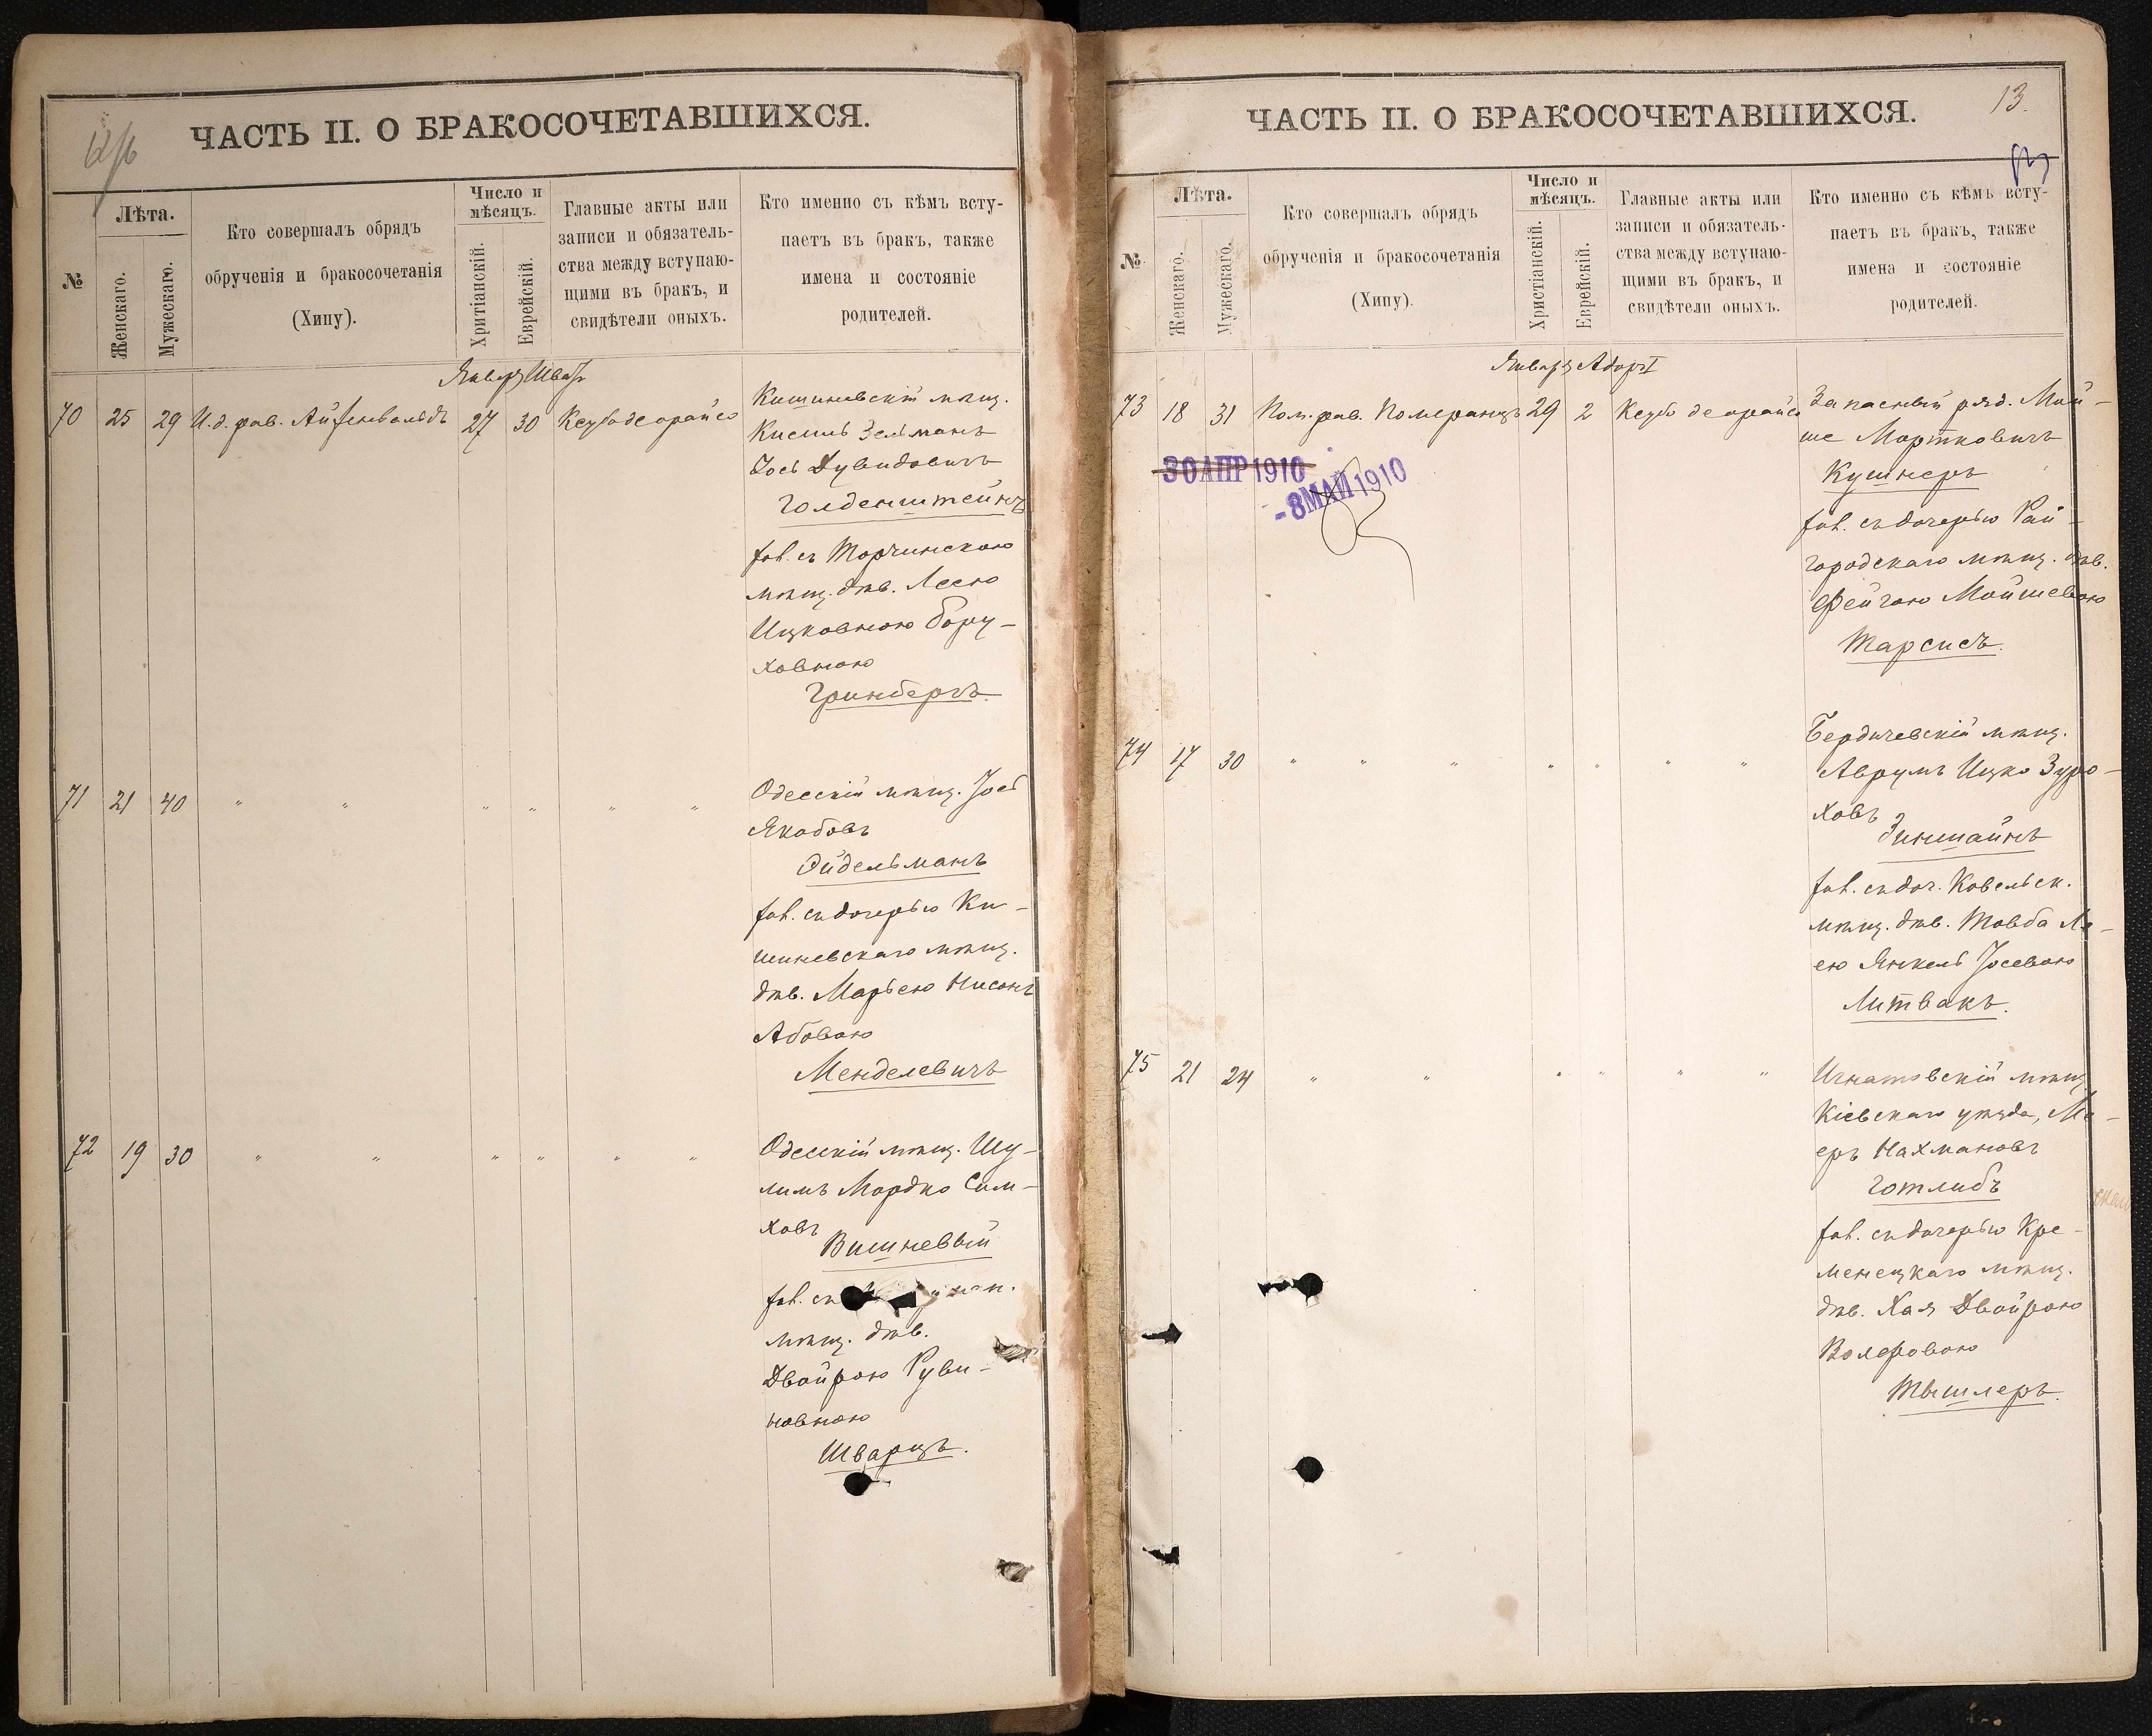 ЧАСТЬ II. О БРАКОСОЧЕТАВШИХСЯ.
№
Лѣта.
Женскаго.
Мужескаго.
Кто совершалъ обрядъ
обрученія и бракосочетанія
(Хипу).
Число и
мѣсяцъ.
Хритіанскій.
Еврейскій.
Главные акты или
записи и обязатель-
ства между вступаю-
щими въ бракъ, и
свидѣтели оныхъ.
Кто именно съ кѣмъ всту-
паетъ въ бракъ, также
имена и состояніе
родителей.
Январь Шватъ
70 25 29 И.д. рав. Айзенвальдъ 27 30 Кесубо деорайсо
Кишиневскій мѣщ.
Кисиль Зельманъ
Іось Дувидовичъ
Голденштейнъ
зак. съ Торчинскою
мѣщ. дѣв. Леею
Ицковною Бору-
ховною
Гринбергъ.
71 21 40 " " " " " "
Одесскій мѣщ. Іось
Якобовъ
Эйдельманъ
зак. съ дочерью Ки-
шиневскаго мѣщ.
дѣв. Марьею Нисонъ
Абовою
Менделевичъ
72 19 30 " " " " " "
Одесскій мѣщ. Шу-
лимъ Мордко Сим-
ховъ
Вишневый
зак. съ
мѣщ. дѣв.
Двойрою Руви-
новною
Шварцъ.
ЧАСТЬ II. О БРАКОСОЧЕТАВШИХСЯ.
13.
№
Лѣта.
Женскаго.
Мужескаго.
Кто совершалъ обрядъ
обрученія и бракосочетанія
(Хипу).
Число и
мѣсяцъ.
Христіанскій.
Еврейскій.
Главные акты или
записи и обязатель-
ства между вступаю-
щими въ бракъ, и
свидѣтели оныхъ.
Кто именно съ кѣмъ всту-
паетъ въ бракъ, также
имена и состояніе
родителей.
Январь Адоръ I
73 18 31 Пом. рав. Померанцъ 29 2 Кесубо деорайсо
30 АПР 1910
- 8 МАЙ 1910
Запасный ряд. Мой-
ше Мортковичъ
Кушнеръ
зак. съ дочерью Рай-
городскаго мѣщ. дѣв.
Фейгою Мойшевою
Тарсисъ.
74 17 30 " " " " " " "
Бердичевскій мѣщ.
Аврумъ Ицко Зуро-
ховъ
Зинштайнъ
зак. съ доч. Ковельск.
мѣщ. дѣв. Товба Ле-
ею Янкель Іосевою
Литвакъ.
75 21 24 " " " " " "
Игнатовскій мѣщ.
Кіевскаго уѣзда, Ме-
еръ Нахмановъ
Готлибъ
зак. съ дочерью Кре-
менецкаго мѣщ.
дѣв. Хая Двойрою
Волфовою
Тышлеръ.